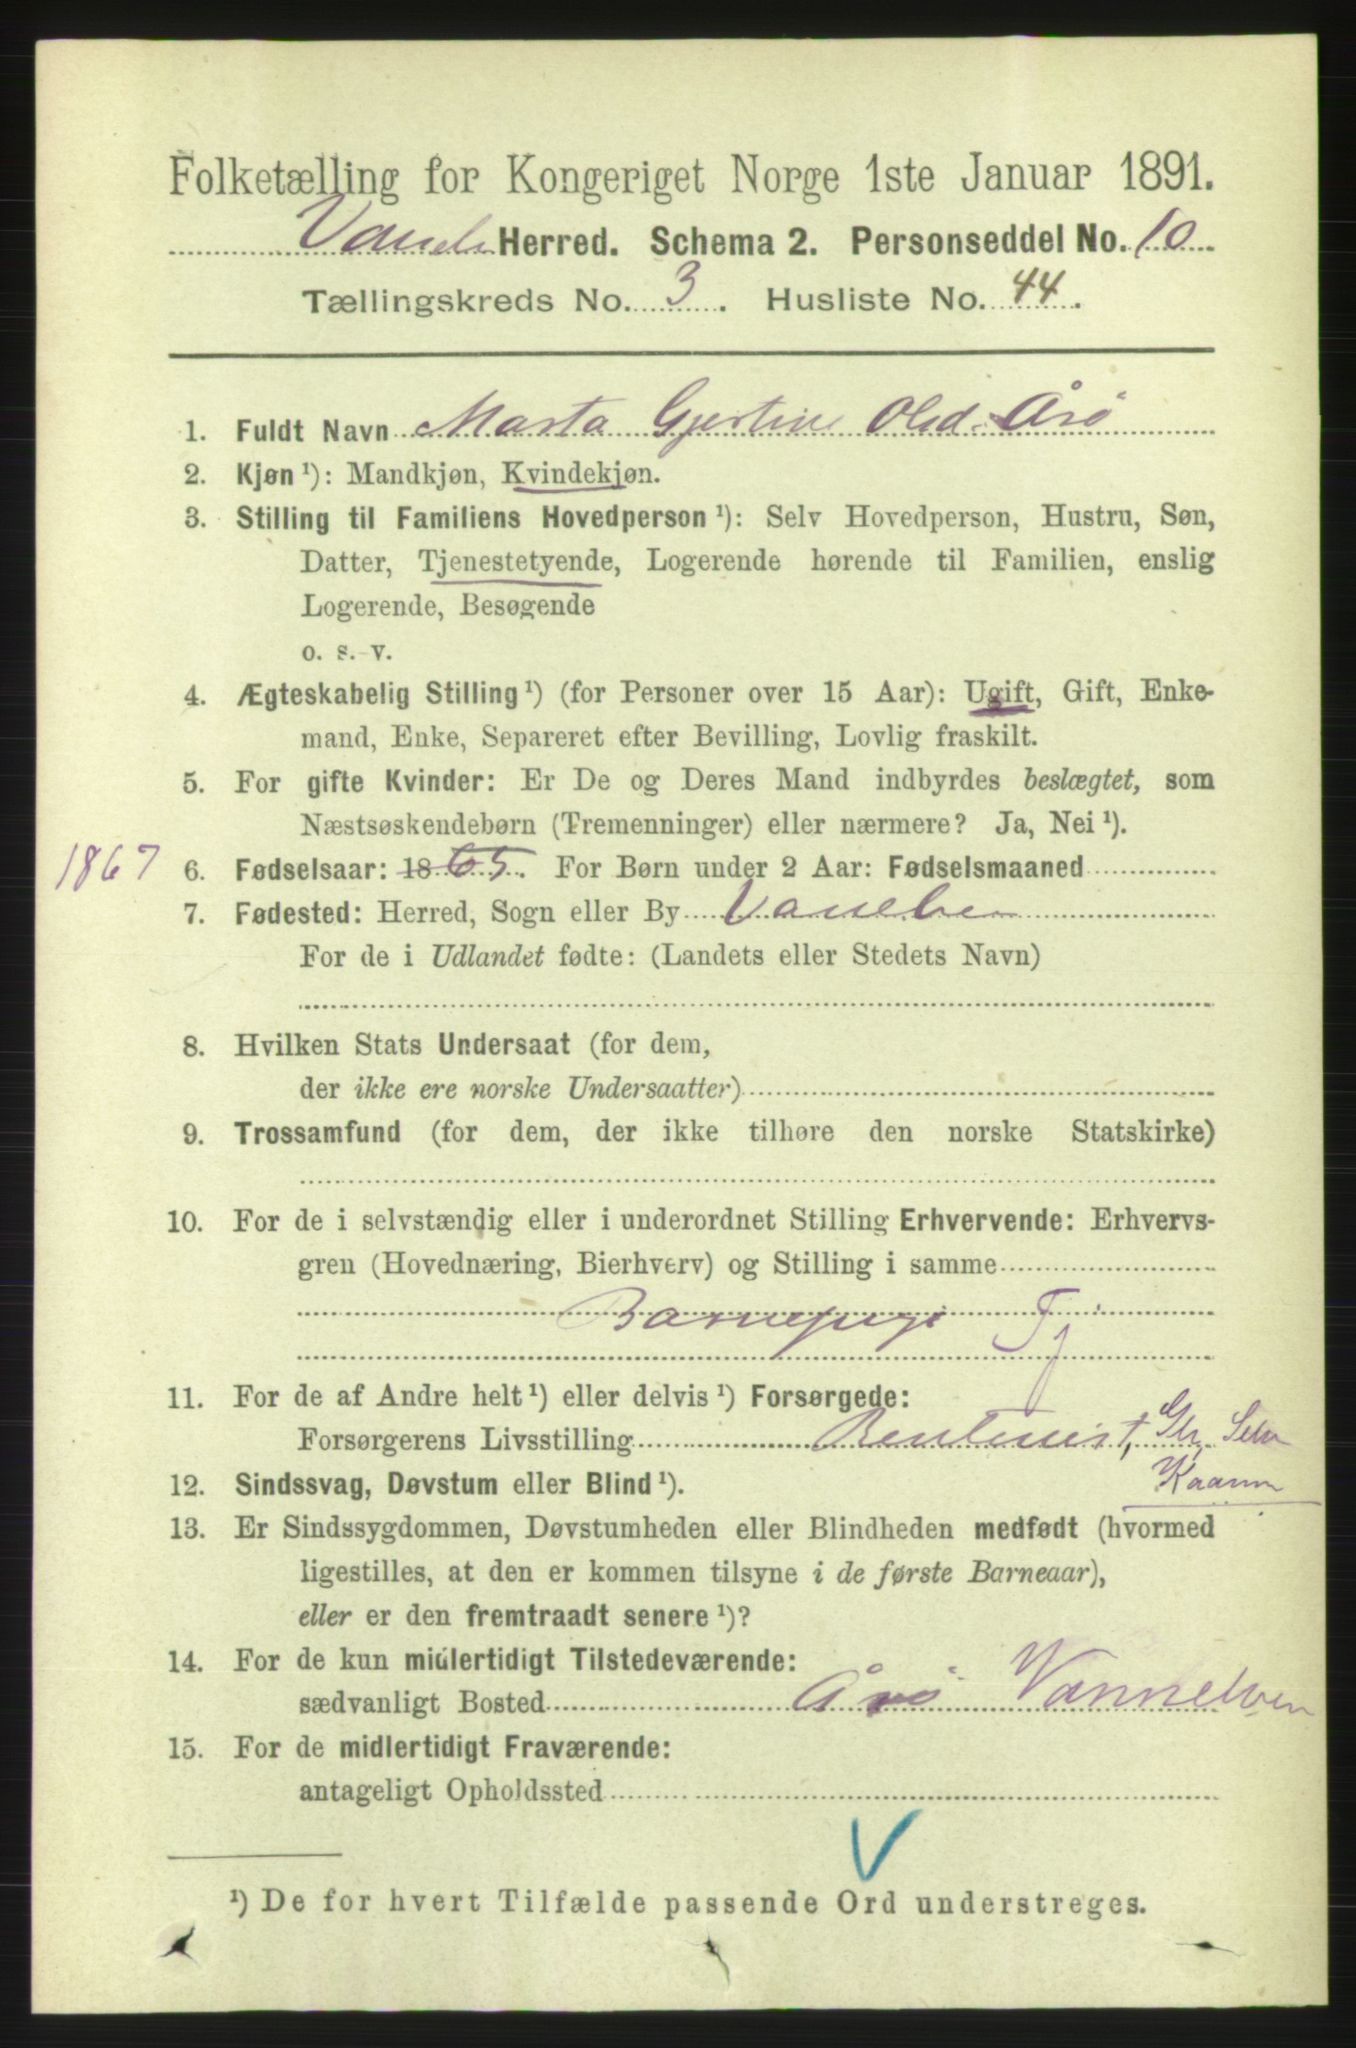 Folketælling for Kongeriget Norge 1ste Januar 1891.
Herred. Schema 2. Personseddel No. 10
Tællingskreds No. 3. Husliste No. 44.
1. Fuldt Navn Marta Gjertine Olsd. Årø
2. Kjøn ¹): Mandkjøn, Kvindekjøn.
3. Stilling til Familiens Hovedperson ¹): Selv Hovedperson, Hustru, Søn,
Datter, Tjenestetyende, Logerende hørende til Familien, enslig
Logerende, Besøgende
o. s. v.
4. Ægteskabelig Stilling ¹) (for Personer over 15 Aar): Ugift, Gift, Enke-
mand, Enke, Separeret efter Bevilling, Lovlig fraskilt.
5. For gifte Kvinder: Er De og Deres Mand indbyrdes beslægtet, som
Næstsøskendebørn (Tremenninger) eller nærmere? Ja, Nei ¹).
1867 6. Fødselsaar: 1865. For Børn under 2 Aar: Fødselsmaaned
7. Fødested: Herred, Sogn eller By
For de i Udlandet fødte: (Landets eller Stedets Navn)
8. Hvilken Stats Undersaat (for dem,
der ikke ere norske Undersaatter)
9. Trossamfund (for dem, der ikke tilhøre den norske Statskirke)
10. For de i selvstændig eller i underordnet Stilling Erhvervende: Erhvervs-
gren (Hovednæring, Bierhverv) og Stilling i samme
Barnepige Tj
11. For de af Andre helt ¹) eller delvis ¹) Forsørgede:
Forsørgerens Livsstilling
12. Sindssvag, Døvstum eller Blind ¹).
13. Er Sindssygdommen, Døvstumheden eller Blindheden medfødt (hvormed
ligestilles, at den er kommen tilsyne i de første Barneaar),
eller er den fremtraadt senere ¹)?
14. For de kun midlertidigt Tilstedeværende:
sædvanligt Bosted Årø Vannelven
15. For de midlertidigt Fraværende:
antageligt Opholdssted
¹) De for hvert Tilfælde passende Ord understreges.